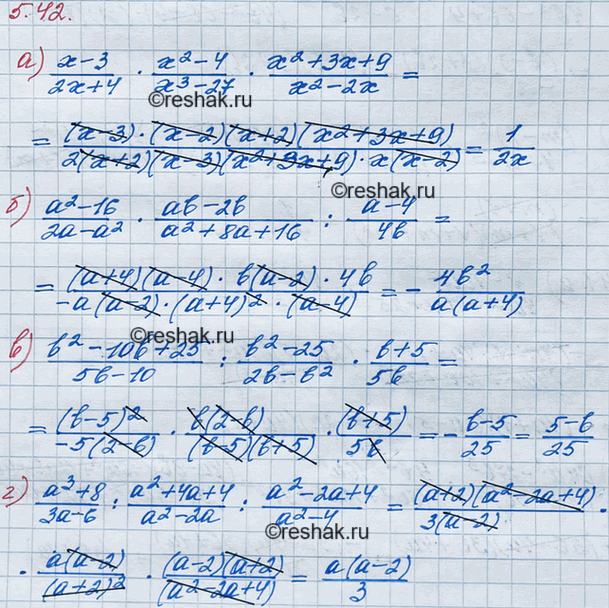 5.42.
а) (x-3)/(2x+4) · (x²-4)/(x³-27) · (x²+3x+9)/(x²-2x) =
©reshak.ru
= ((x-3)·(x-2)(x+2)(x²+3x+9))/(2(x+2)(x-3)(x²+3x+9)·x(x-2)) = 1/(2x)
©reshak.ru
б) (a²-16)/(2a-a²) · (ab-2b)/(a²+8a+16) : (a-4)/(4b) =
= ((a+4)(a-4)·b(a-2)·4b)/(-a(a-2)·(a+4)²·(a-4)) = - 4b²/(a(a+4))
©reshak.ru
в) (b²-10b+25)/(5b-10) : (b²-25)/(2b-b²) · (b+5)/(5b) =
= (b-5)²/(-5(2-b)) · b(2-b)/((b-5)(b+5)) · (b+5)/(5b) = - (b-5)/25 = (5-b)/25
©reshak.ru
г) (a³+8)/(3a-6) : (a²+4a+4)/(a²-2a) : (a²-2a+4)/(a²-4) = ((a+2)(a²-2a+4))/(3(a-2)) ·
· a(a-2)/(a+2)² · ((a-2)(a+2))/(a²-2a+4) = a(a-2)/3
©reshak.ru